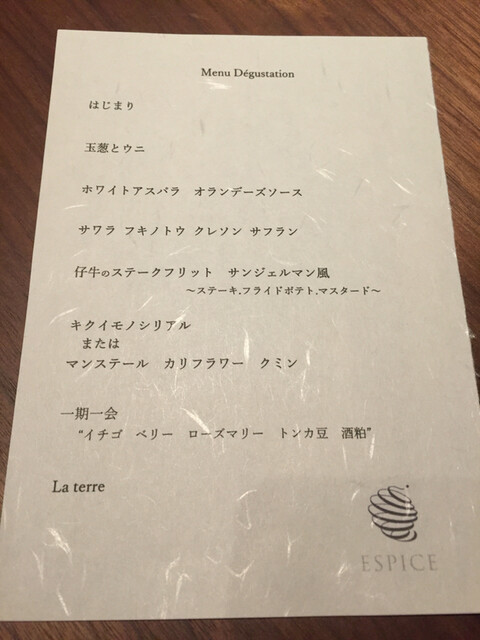 Menu Dégustation
はじまり
玉葱とウニ
ホワイトアスパラ　オランデーズソース
サワラ フキノトウ クレソン サフラン
仔牛のステークフリット　サンジェルマン風
～ステーキ.フライドポテト.マスタード～
キクイモノシリアル
または
マンステール　カリフラワー　クミン
一期一会
“イチゴ　ベリー　ローズマリー　トンカ豆　酒粕”
La terre
ESPICE